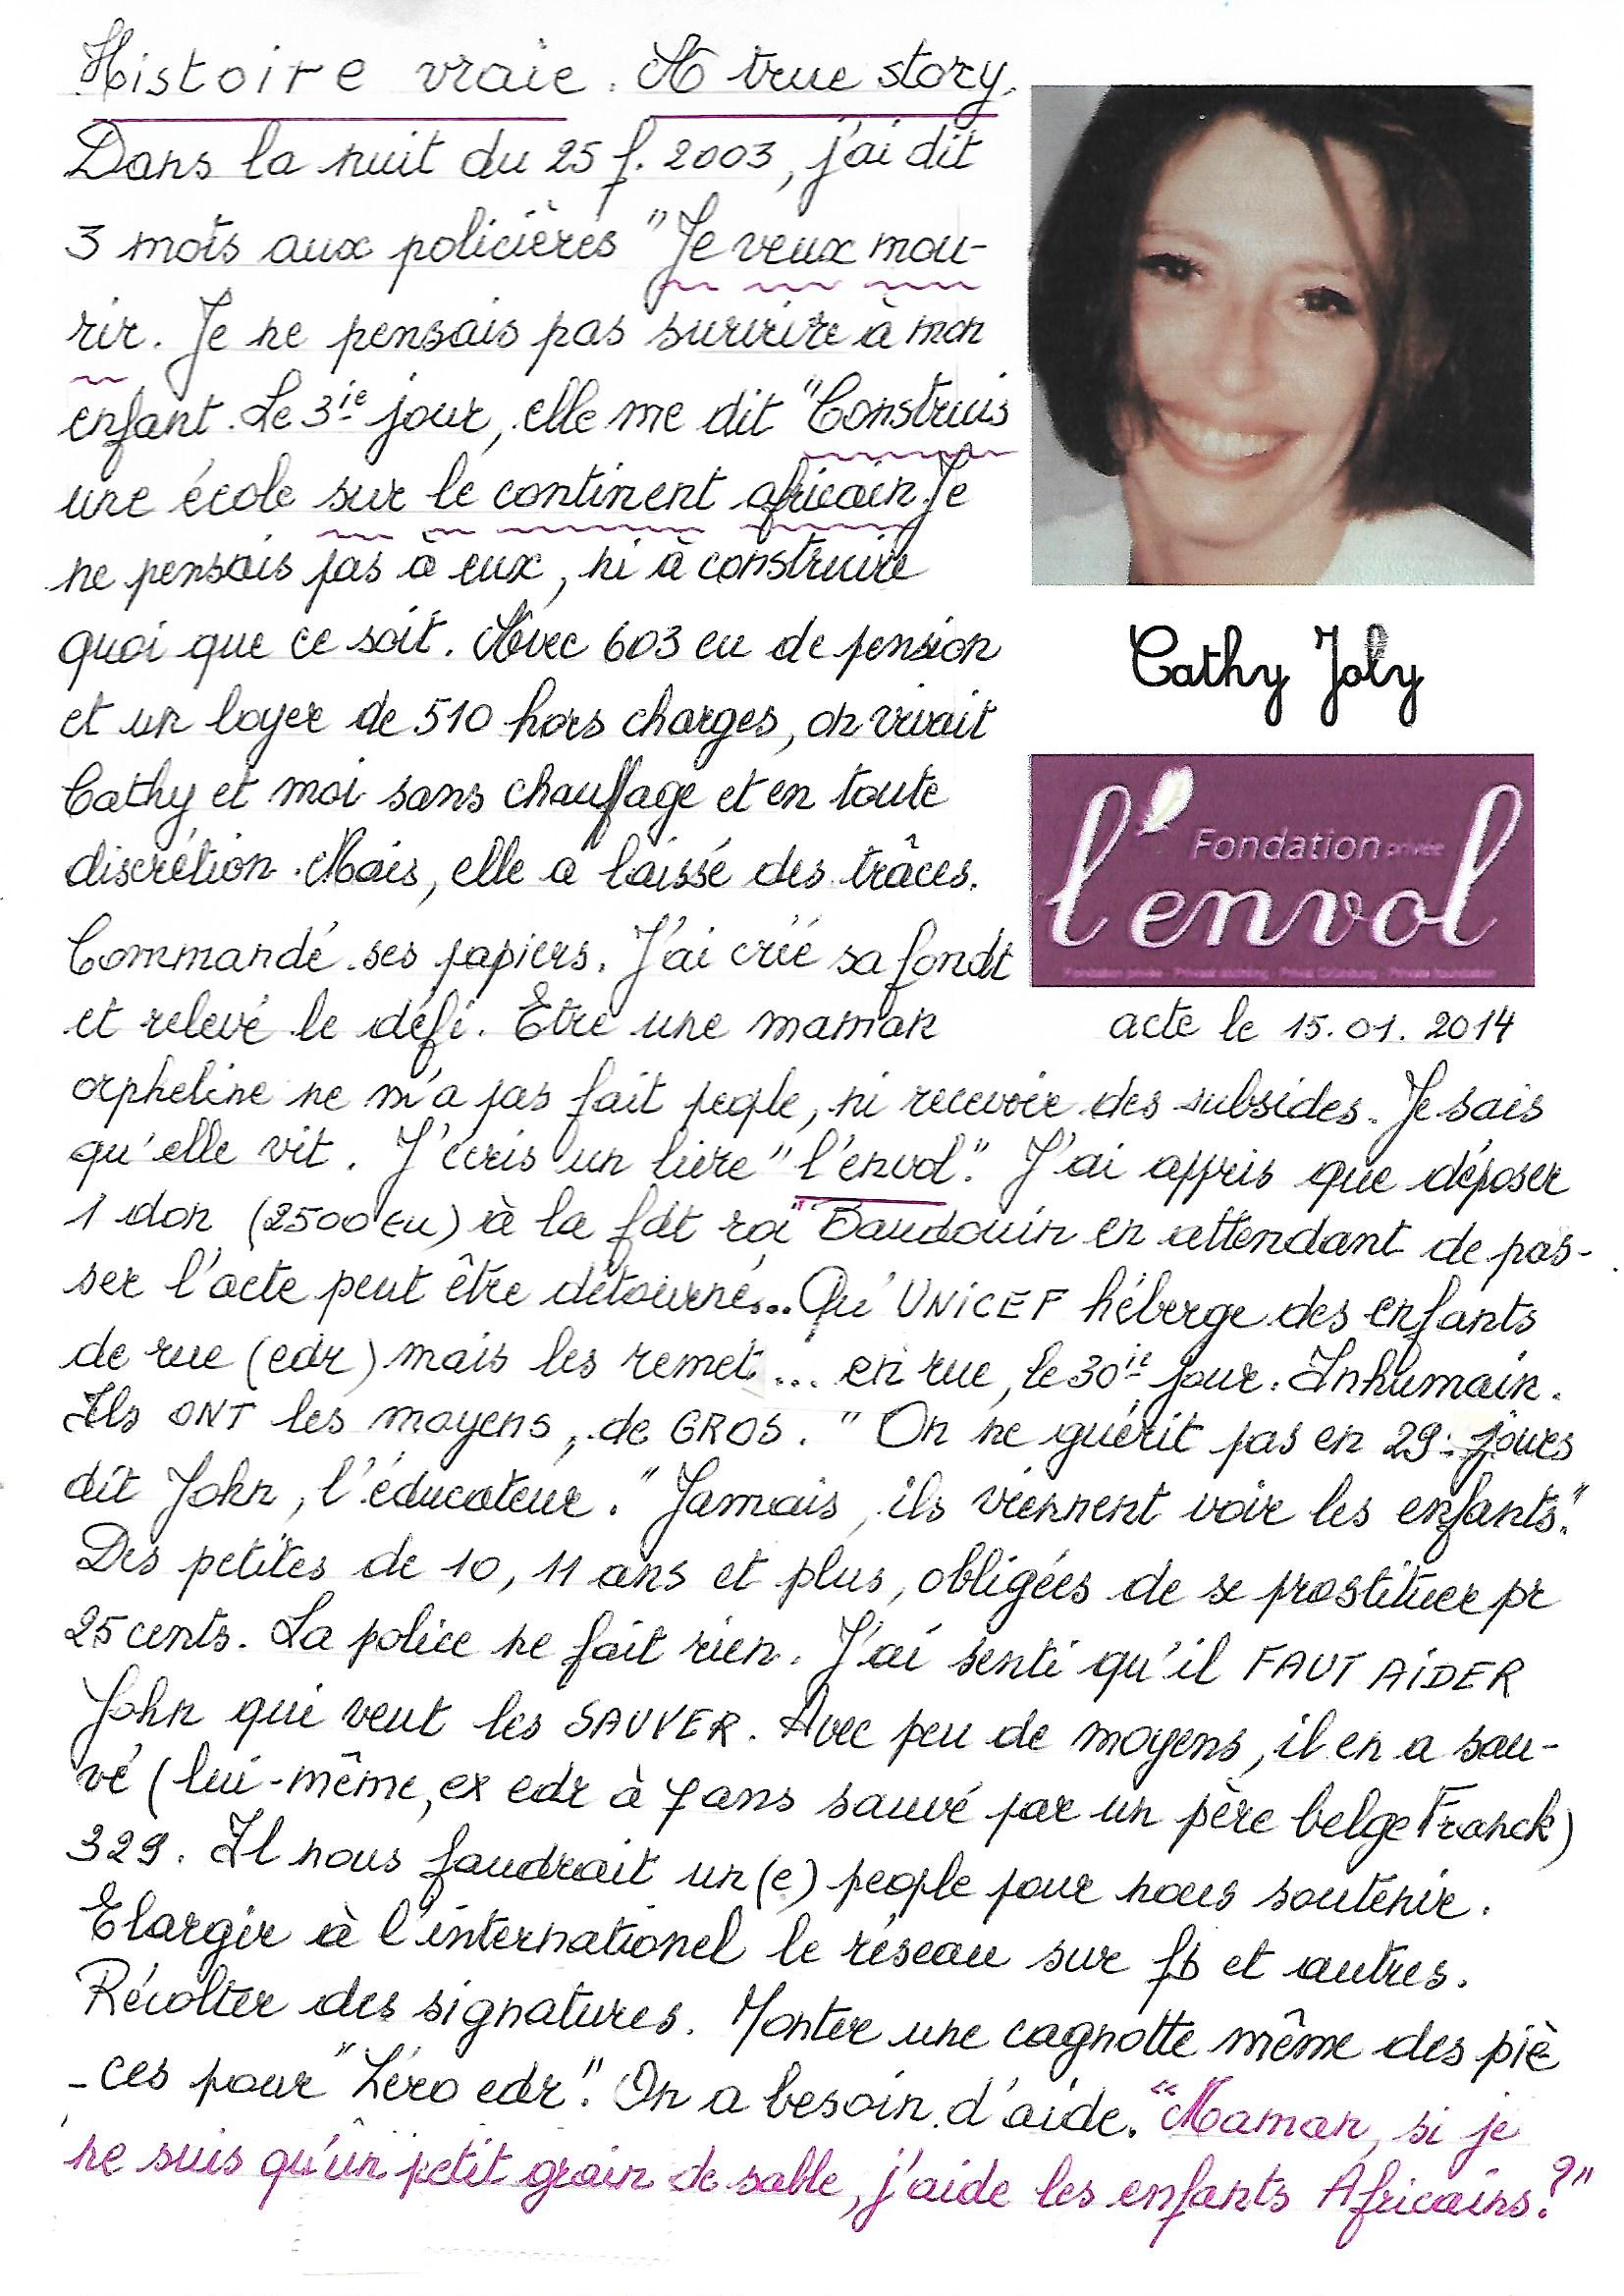 Histoire vraie. A true story.
Dans la nuit du 25 f. 2003, j'ai dit
3 mots aux policières "Je veux mou-
rir. Je ne pensais pas survivre à mon
enfant. Le 3ie jour, elle me dit "Construis
une école sur le continent africain. Je
ne pensais pas à eux, ni à construire
quoi que ce soit. Avec 603 eu de pension
et un loyer de 510 hors charges, on vivait
Cathy et moi sans chauffage et en toute
discrétion. Mais, elle a laissé des trâces.
Commandé ses papiers. J'ai créé sa fondt
et relevé le défi. Etre une maman
orpheline ne m'a pas fait people, ni recevoir des subsides. Je sais
qu'elle vit. J'écris un livre "l'envol". J'ai appris que déposer
1 don (2500 eu) à la fdt roi Baudouin en attendant de pas-
ser l'acte peut être détourné... Qu'UNICEF héberge des enfants
de rue (edr) mais les remet ... en rue, le 30ie jour. Inhumain.
Ils ONT les moyens, de GROS. "On ne guérit pas en 29 jours
dit John, l'éducateur. "Jamais, ils viennent voir les enfants."
Des petites de 10, 11 ans et plus, obligées de se prostituer pr
25 cents. La police ne fait rien. J'ai senti qu'il FAUT AIDER
John qui veut les SAUVER. Avec peu de moyens, il en a sau-
vé (lui-même, ex edr à 7 ans sauvé par un père belge Franck)
329. Il nous faudrait un(e) people pour nous soutenir.
Elargir à l'international le réseau sur fb et autres.
Récolter des signatures. Monter une cagnotte même des piè
-ces pour "Zéro edr". On a besoin d'aide. "Maman, si je
ne suis qu'un petit grain de sable, j'aide les enfants Africains?"
Cathy Joly
Fondation privée
l'envol
Fondation privée - Private stichting - Privat Gründung - Private foundation
acte le 15.01.2014